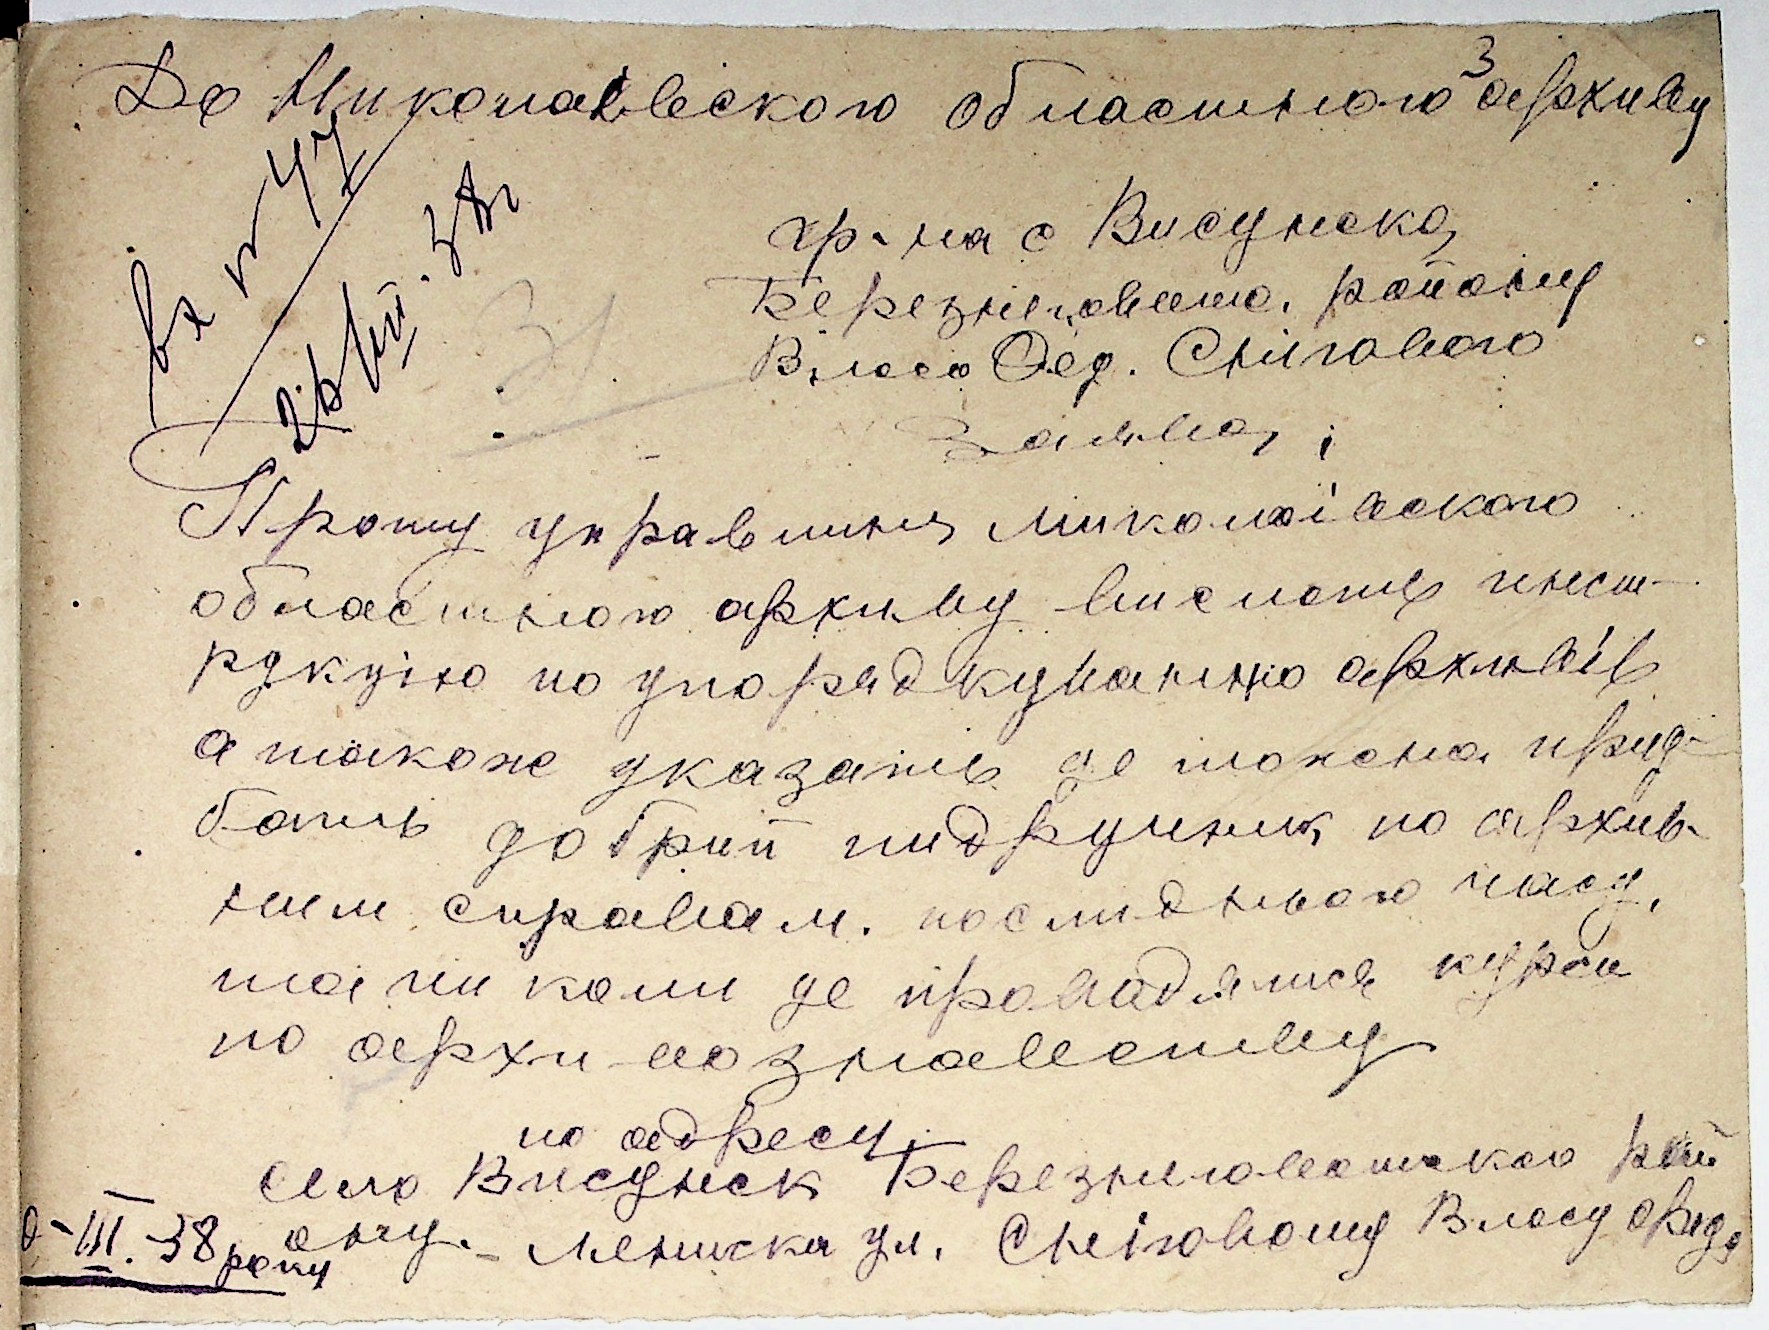 3
До Миколаівского областного архиву
вх № 47
26/III. 38 г
31
гр-на с Висунска
Березнеговато. району
Власа Фед. Снігового
Заява
Прошу управлиня миколаівского
областного архиву вислать инст-
рукцію по упорядкуванню архивів
а також указать де можна прид-
бать добрий пидручник по архив-
ним справам. послиднього часу,
та чи коли де провадялися курси
по архивознавству
по адресу
село Висунск Березниговатского рай
ону. Ленінска ул. Сніговому Власу Фид.
0-III.-38 року